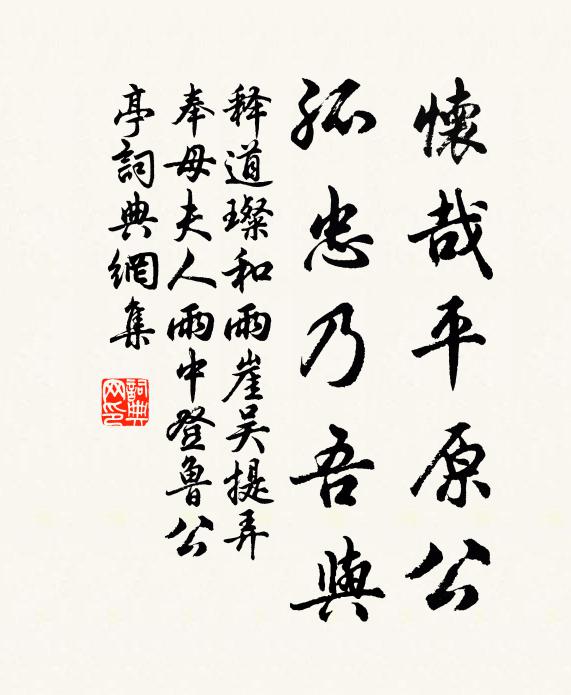 懷哉平原公
孤忠乃吾與
释道璨和雨崖吴提弄
奉母夫人雨中登鲁公
亭詞典網集
詞典
网印